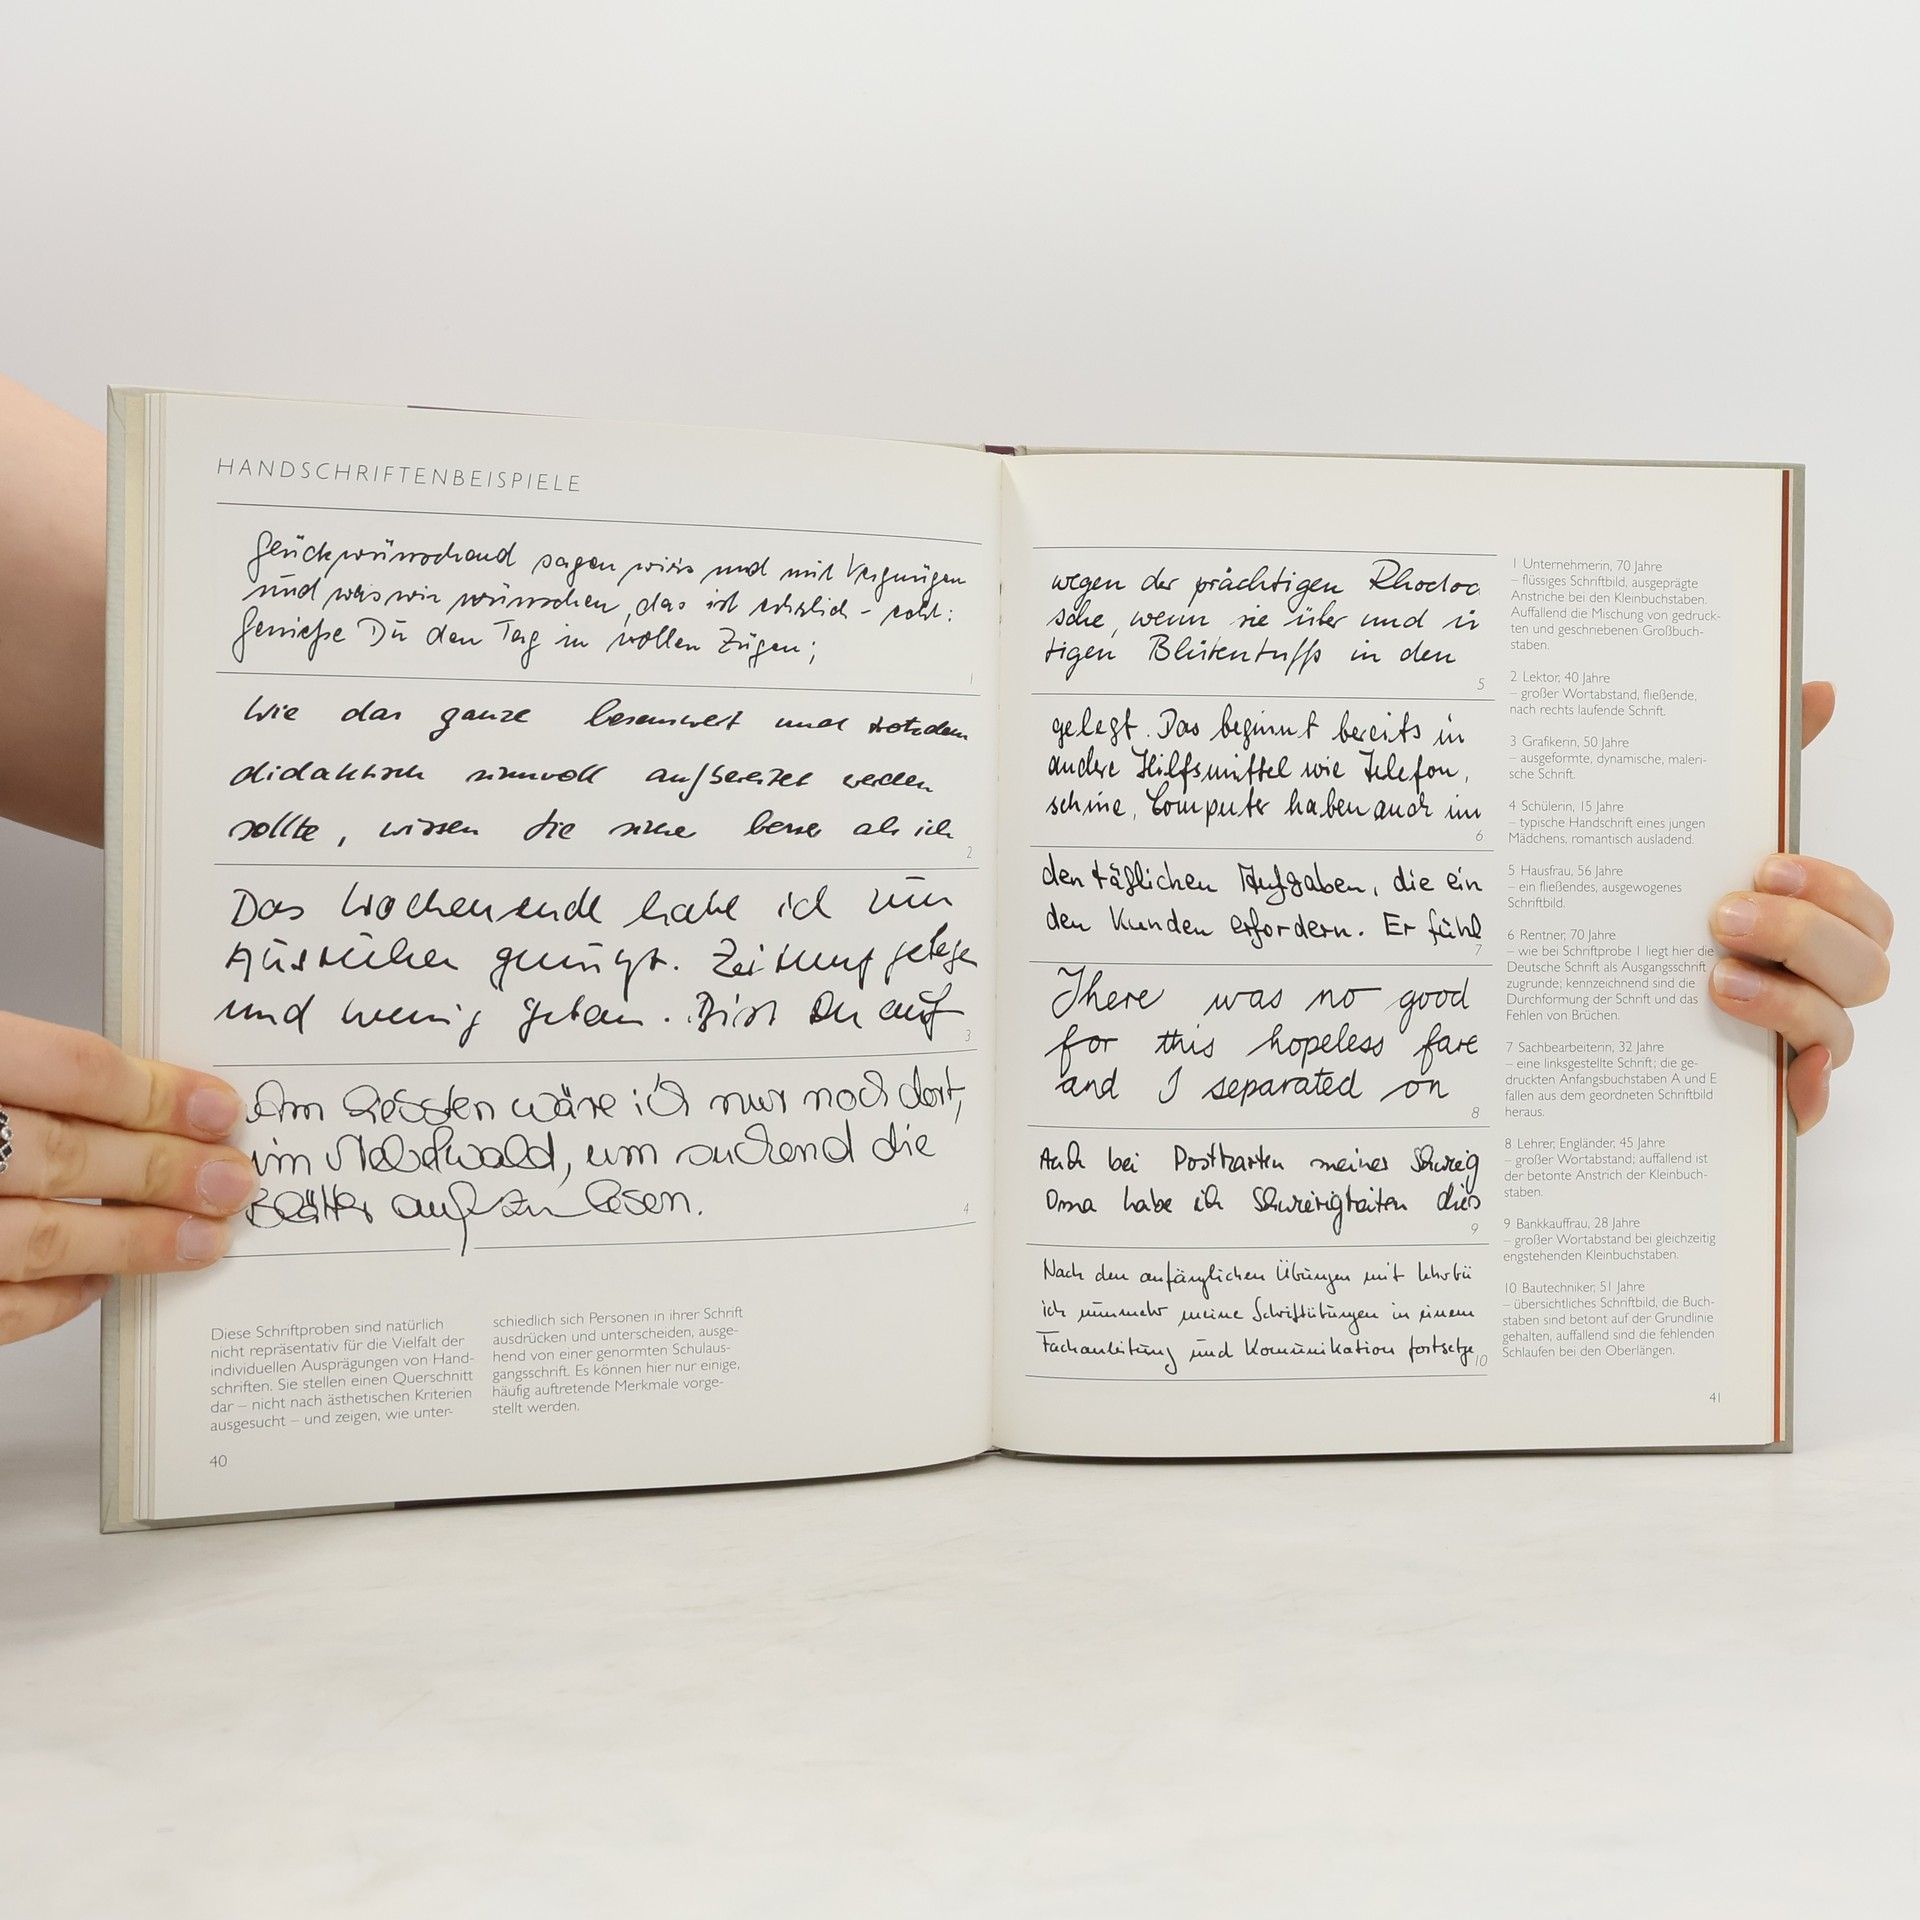 HANDSCHRIFTENBEISPIELE
Glückwünschend sagen wirs und mit Vergnügen
und was wir wünschen, das ist ehrlich - echt:
Genieße Du den Tag in vollen Zügen;
1
Wie das ganze lesenswert und trotzdem
didaktisch sinnvoll aufbereitet werden
sollte, wissen Sie sicher besser als ich
2
Das Wochenende habe ich zum
Ausruhen genutzt. Zeitung gelesen
und wenig getan. Bist Du auf
3
Am liebsten wäre ich nur noch dort,
im Nebelwald, um suchend die
Blätter aufzulesen.
4
Diese Schriftproben sind natürlich
nicht repräsentativ für die Vielfalt der
individuellen Ausprägungen von Hand-
schriften. Sie stellen einen Querschnitt
dar – nicht nach ästhetischen Kriterien
ausgesucht – und zeigen, wie unter-
schiedlich sich Personen in ihrer Schrift
ausdrücken und unterscheiden, ausge-
hend von einer genormten Schulaus-
gangsschrift. Es können hier nur einige,
häufig auftretende Merkmale vorge-
stellt werden.
40
wegen der prächtigen Rhodod
sche, wenn sie über und ü
tigen Blütentuffs in den
5
gelegt. Das beginnt bereits in
andere Hilfsmittel wie Telefon,
schine, Computer haben auch im
6
den täglichen Aufgaben, die ein
den Kunden erfordern. Er fühl
7
There was no good
for this hopeless fare
and I separated on
8
Auch bei Postkarten meiner Schwieg
Oma habe ich Schwierigkeiten dies
9
Nach den anfänglichen Übungen mit Lehrbü
ich nunmehr meine Schriftübungen in einem
Fachanleitung und Komunikation fortsetze
10
1 Unternehmerin, 70 Jahre
– flüssiges Schriftbild, ausgeprägte
Anstriche bei den Kleinbuchstaben.
Auffallend die Mischung von gedruck-
ten und geschriebenen Großbuch-
staben.
2 Lektor, 40 Jahre
– großer Wortabstand, fließende,
nach rechts laufende Schrift.
3 Grafikerin, 50 Jahre
– ausgeformte, dynamische, maleri-
sche Schrift.
4 Schülerin, 15 Jahre
– typische Handschrift eines jungen
Mädchens, romantisch ausladend.
5 Hausfrau, 56 Jahre
– ein fließendes, ausgewogenes
Schriftbild.
6 Rentner, 70 Jahre
– wie bei Schriftprobe 1 liegt hier die
Deutsche Schrift als Ausgangsschrift
zugrunde; kennzeichnend sind die
Durchformung der Schrift und das
Fehlen von Brüchen.
7 Sachbearbeiterin, 32 Jahre
– eine linksgestellte Schrift; die ge-
druckten Anfangsbuchstaben A und E
fallen aus dem geordneten Schriftbild
heraus.
8 Lehrer, Engländer, 45 Jahre
– großer Wortabstand; auffallend ist
der betonte Anstrich der Kleinbuch-
staben.
9 Bankkauffrau, 28 Jahre
– großer Wortabstand bei gleichzeitig
engstehenden Kleinbuchstaben.
10 Bautechniker, 51 Jahre
– übersichtliches Schriftbild, die Buch-
staben sind betont auf der Grundlinie
gehalten, auffallend sind die fehlenden
Schlaufen bei den Oberlängen.
41